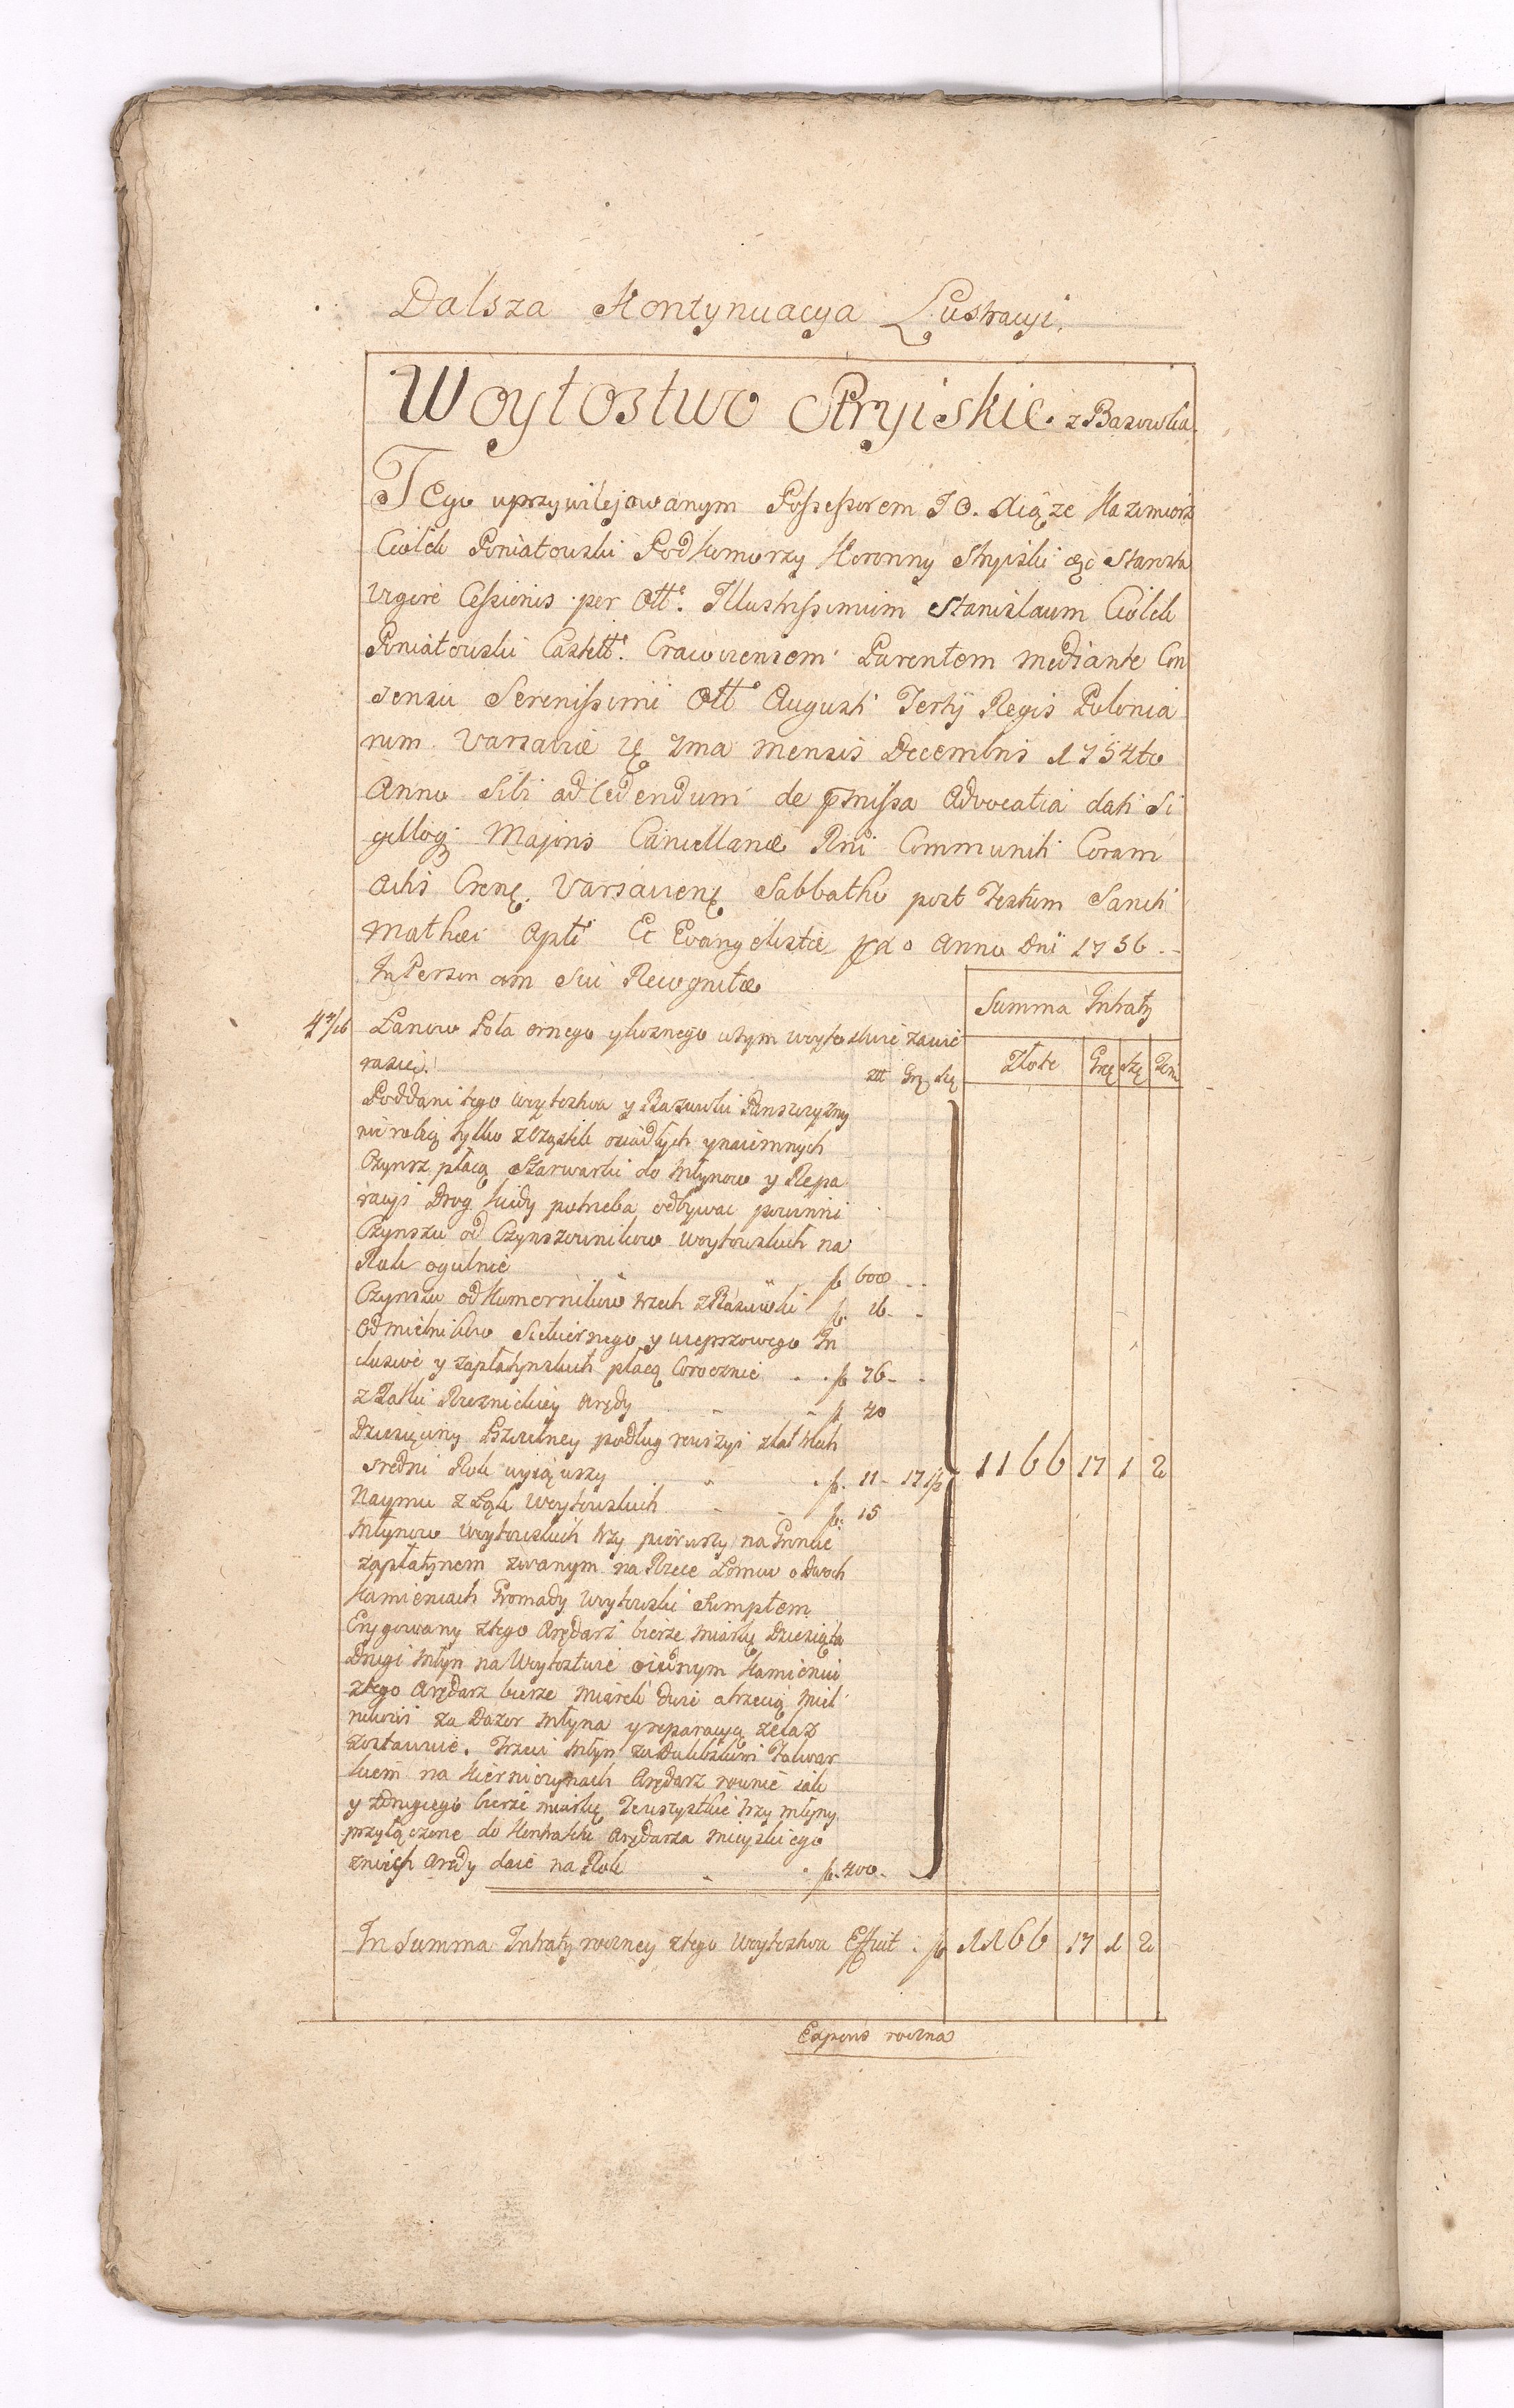 Dalsza Kontynuacya Lustracyi.
Woytostwo Stryiskie. z Bazowka.
Tego uprzywilejowanym Possessorem J O. Xiąże Kazimierz
Ciołek Poniatowski Podkomorzy Koronny Stryiski &c Starosta
Vigore Cessionis per Ill. Illustrissimum Stanislaum Ciołek
Poniatowski Castell. Cracoviensem Parentem mediante Con
sensu Serenissimi Augusti Tertij Regis Polonia
rum Varsaviæ 2ma mensis Decembris 1754to
Anno Sibi ad Cedendum de pmissa Advocatia dati Si
gilloq Majoris Cancellariæ Rni Communiti Coram
Actis Varsavien Sabbatho post Festum Sancti
Mathæi Apli Et Evangelistæ Anno Dni 1756
In Personam Sui Recognitæ
Summa Intraty
Łanow Pola ornego y losnego w tym woytostwie zawie
ra się.
Złł Gr Sz
Złote Gr Sz
Poddani tego Woytostwa y Bazowki Panszczyzny
nie robią tylko z osiadłych y naiemnych
Czynsz płacą Szarwarki do Młynow y Repa
racyi Drog kiedy potrzeba odbywac powinni
Czynszu od Czynszownikow Woytowskich na
Rok ogulnie f 600
Czynszu od Komornikow trzech z Bazuwki f 26
Od mielnikow Siekiernego y wieprzowego In
clusive y zapłatynskich płacą Corocznie f 76
z Jatki Rzeznickiey Arędy f 40
Dziesięciny Pszczelney podług rewizyi z lat trzech
sredni Rok wyiąwszy f. 11 17
1166 17 1 2
Naymu z Łąk Woytowskich f. 15
Młynow Woytowskich trzy pierwszy na Gruncie
zapłatynem zwanym na Rzece Łomu o dwoch
Kamieniach Gromady Woytowski Sumptem
Erygowany z tego Arędarz bierze miarkę Dziesiąta
Drugi Młyn na Woytostwie o iednym Kamieniu
z tego Arędarz bierze miarek dwie a trzecią miel
nikowi za Dozor Młyna y reparacyą zelaz
zostawuie. Trzeci Młyn za Dulibskim Falwar
kiem na Kierniczynach Arędarz rownie iak
y z drugiego bierze miarkę Te wszystkie trzy młyny
przyłączone do Kontraktu Arędarza mieyskiego
z nich arędy daie na Rok f. 400
In Summa Intraty roczney z tego Woytostwa Efficit f 1166 17 1 2
Expens roczna